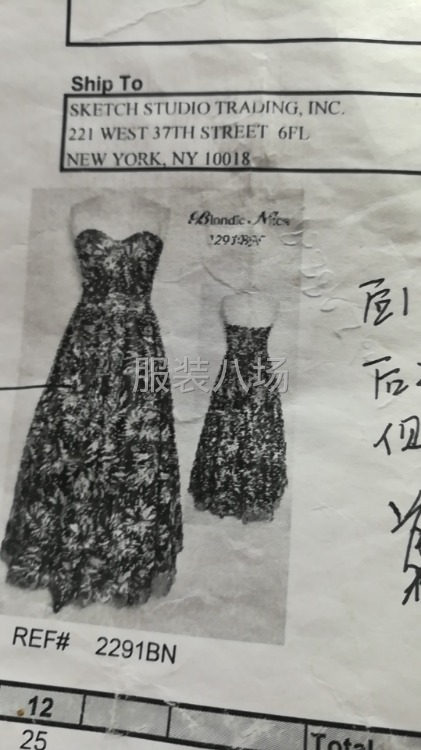 Ship To
SKETCH STUDIO TRADING, INC.
221 WEST 37TH STREET 6FL
NEW YORK, NY 10018
Blondie Nites
2291BN
服装八场
后
REF# 2291BN
12
25
Total